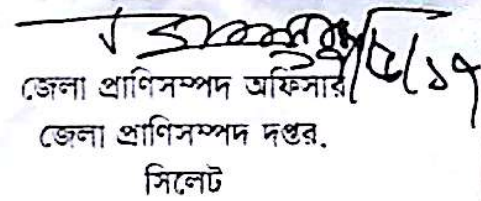 জেলা প্রাণিসম্পদ অফিসার
জেলা প্রাণিসম্পদ দপ্তর.
সিলেট